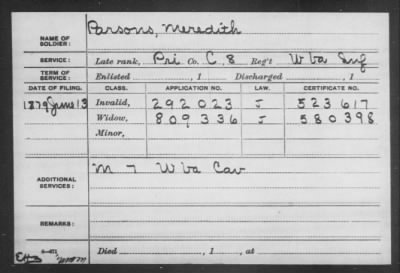 NAME OF SOLDIER: Parsons, Meredith
SERVICE: Late rank, Pri Co. C. 8 Reg't W Va Inf
TERM OF SERVICE: Enlisted , 1 Discharged , 1
DATE OF FILING. CLASS. APPLICATION NO. LAW. CERTIFICATE NO.
1879 June 13 Invalid, 292023 J 523617
Widow, 809336 J 580398
Minor,
ADDITIONAL SERVICES: M 7 W Va Cav
REMARKS:
Died , 1 , at